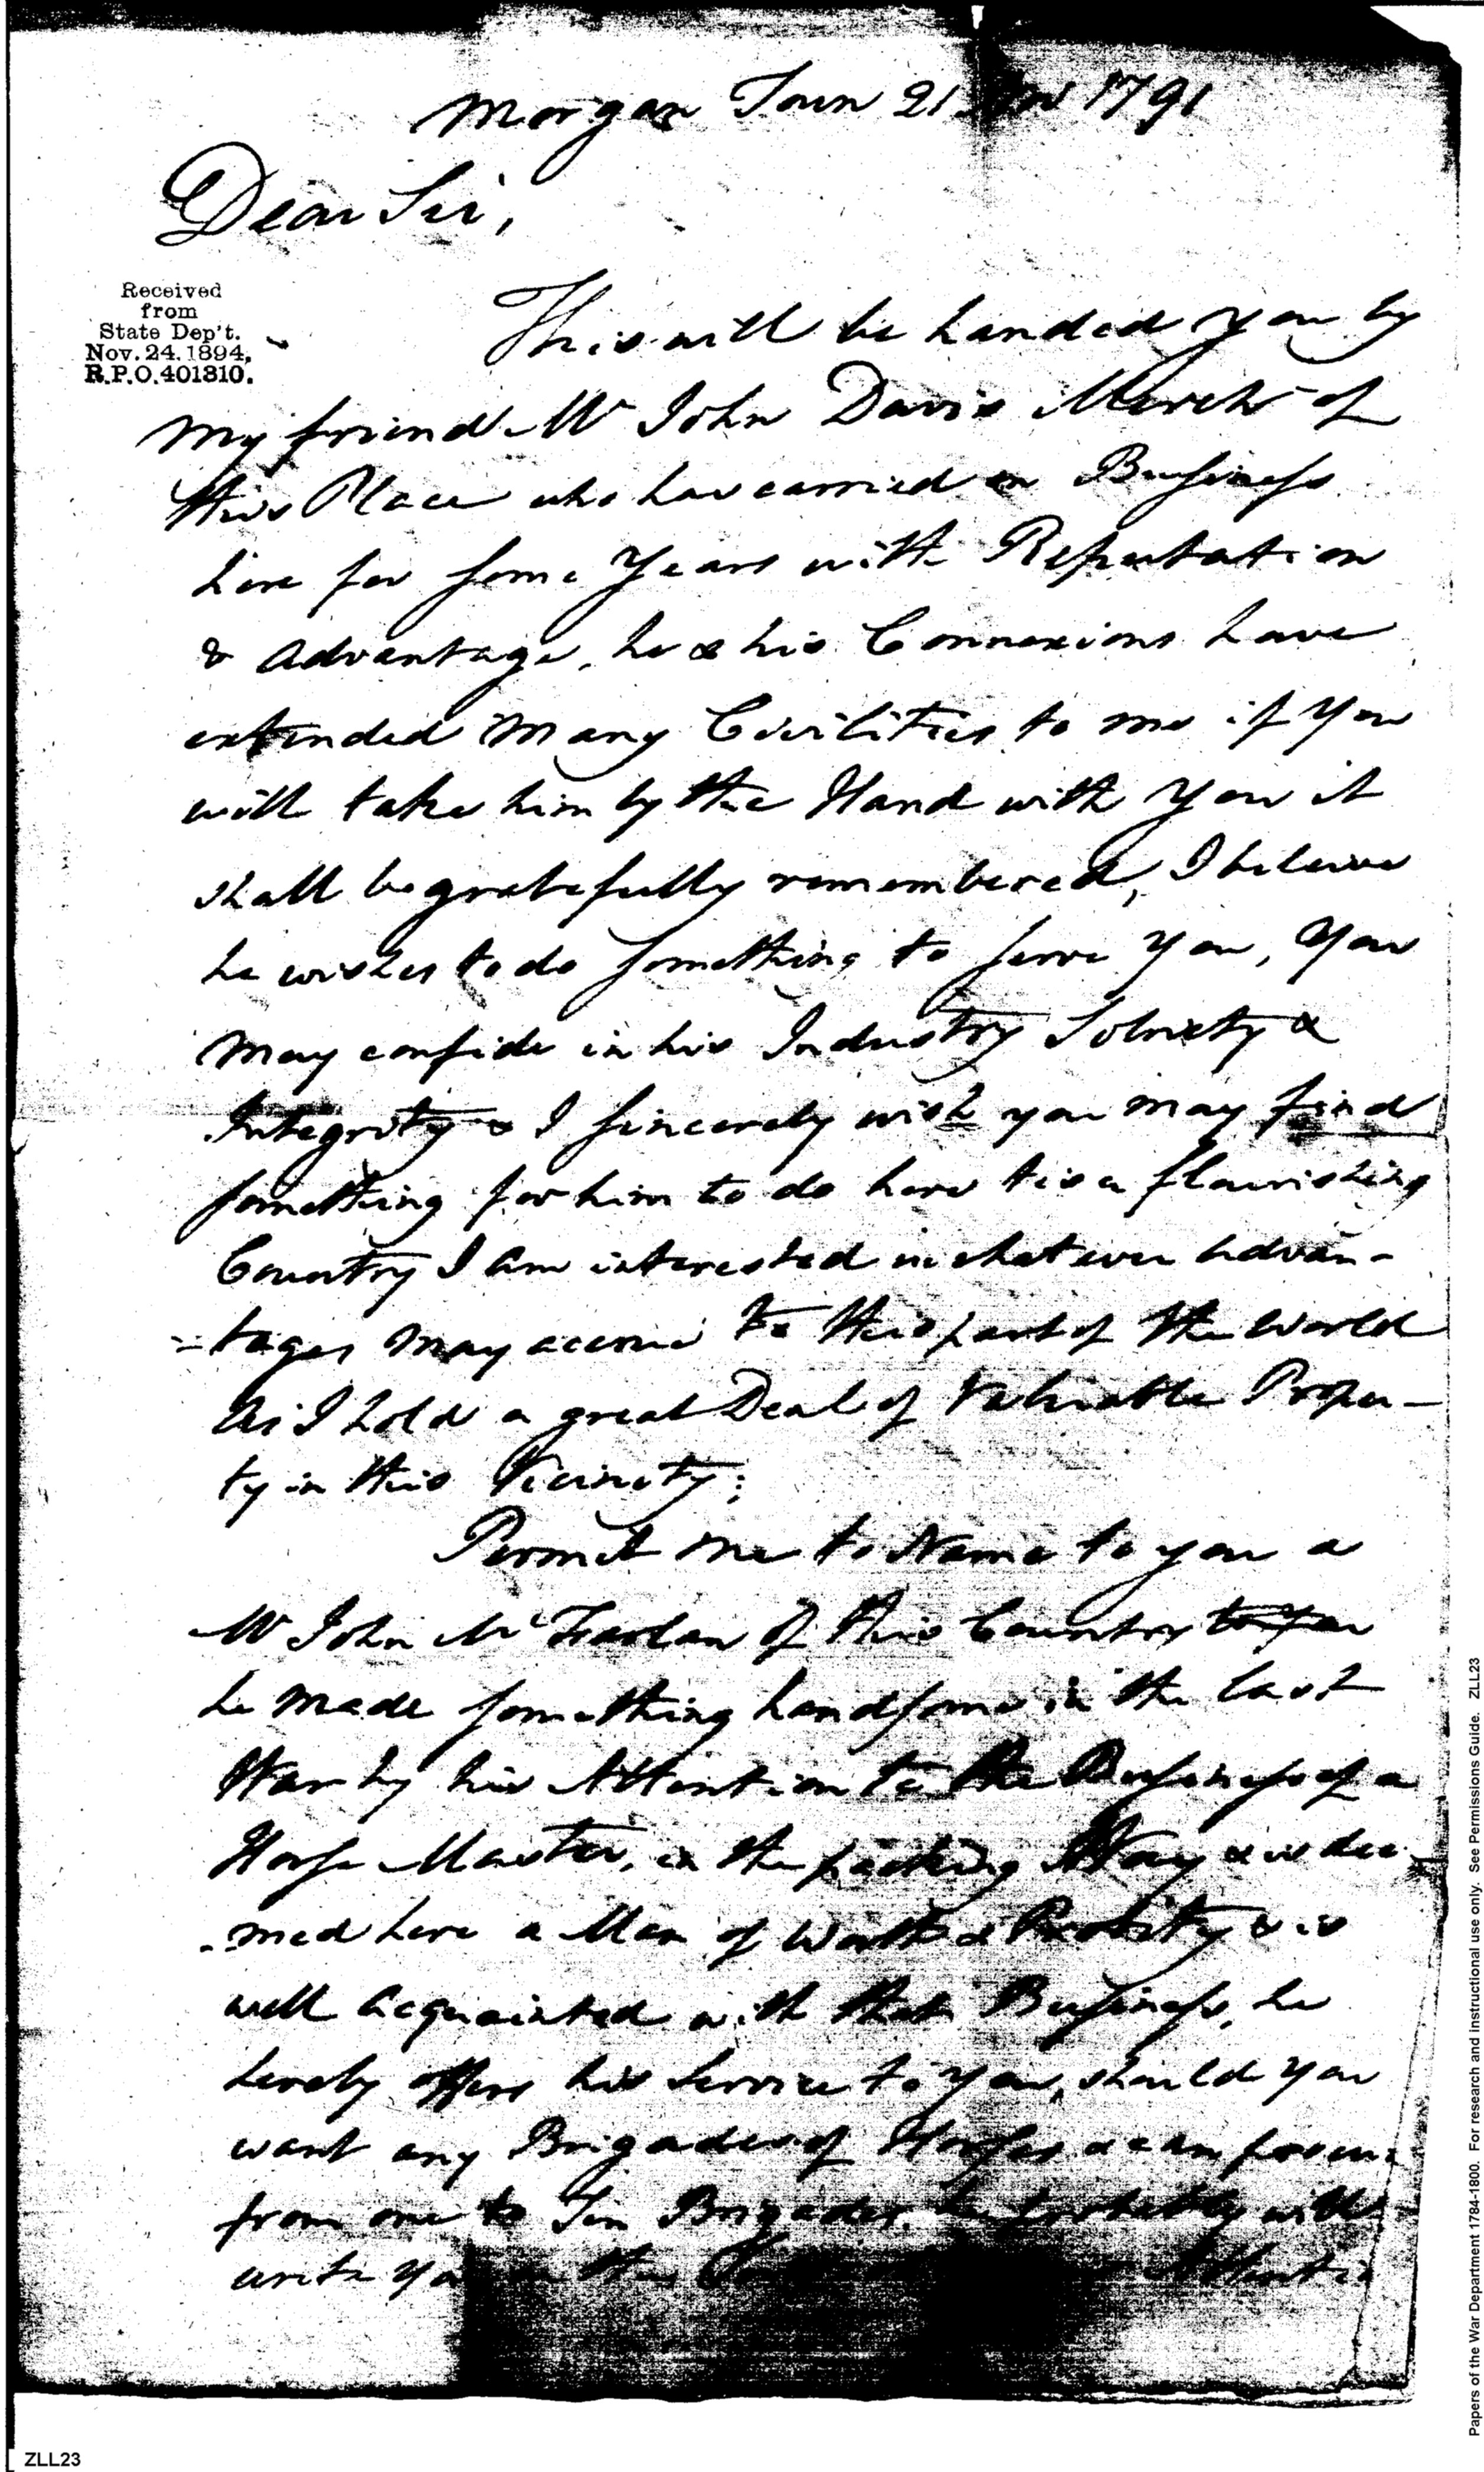 Morgan Town 21 1791
Dear Sir,
Received
from
State Dep't.
Nov. 24. 1894,
R.P.O. 401310.
This will be handed you by
my friend Mr John Davis Mercht of
this Place who has carried on Business
here for some Years with Reputation
& Advantage, he & his Connexions have
extended Many Civilities to me if You
will take him by the Hand with You it
shall be gratefully remembered, I beleive
he wishes to do something to serve You, You
may confide in his Industry Sobriety &
Integrity & I sincerely wish you may find
something for him to do here tis a flourishing
Country I am interested in whatever Advan-
-tages may accrue to this part of the World
As I hold a great Deal of Valuable Proper-
ty in this Vicinity;
Permit me to Name to you a
Mr John McFarlan of this Country to you
he made something handsome in the last
War by his Attention to the Business of a
Horse Master, in the packing Way & is dee-
-med here a Man of Worth & Probity & is
well Acquainted with that Business, he
hereby offers his Service to You, should you
want any Brigades of Horses & can
from one to Ten Brigades. he probably will
write You
ZLL23
Papers of the War Department 1784-1800. For research and instructional use only. See Permissions Guide. ZLL23